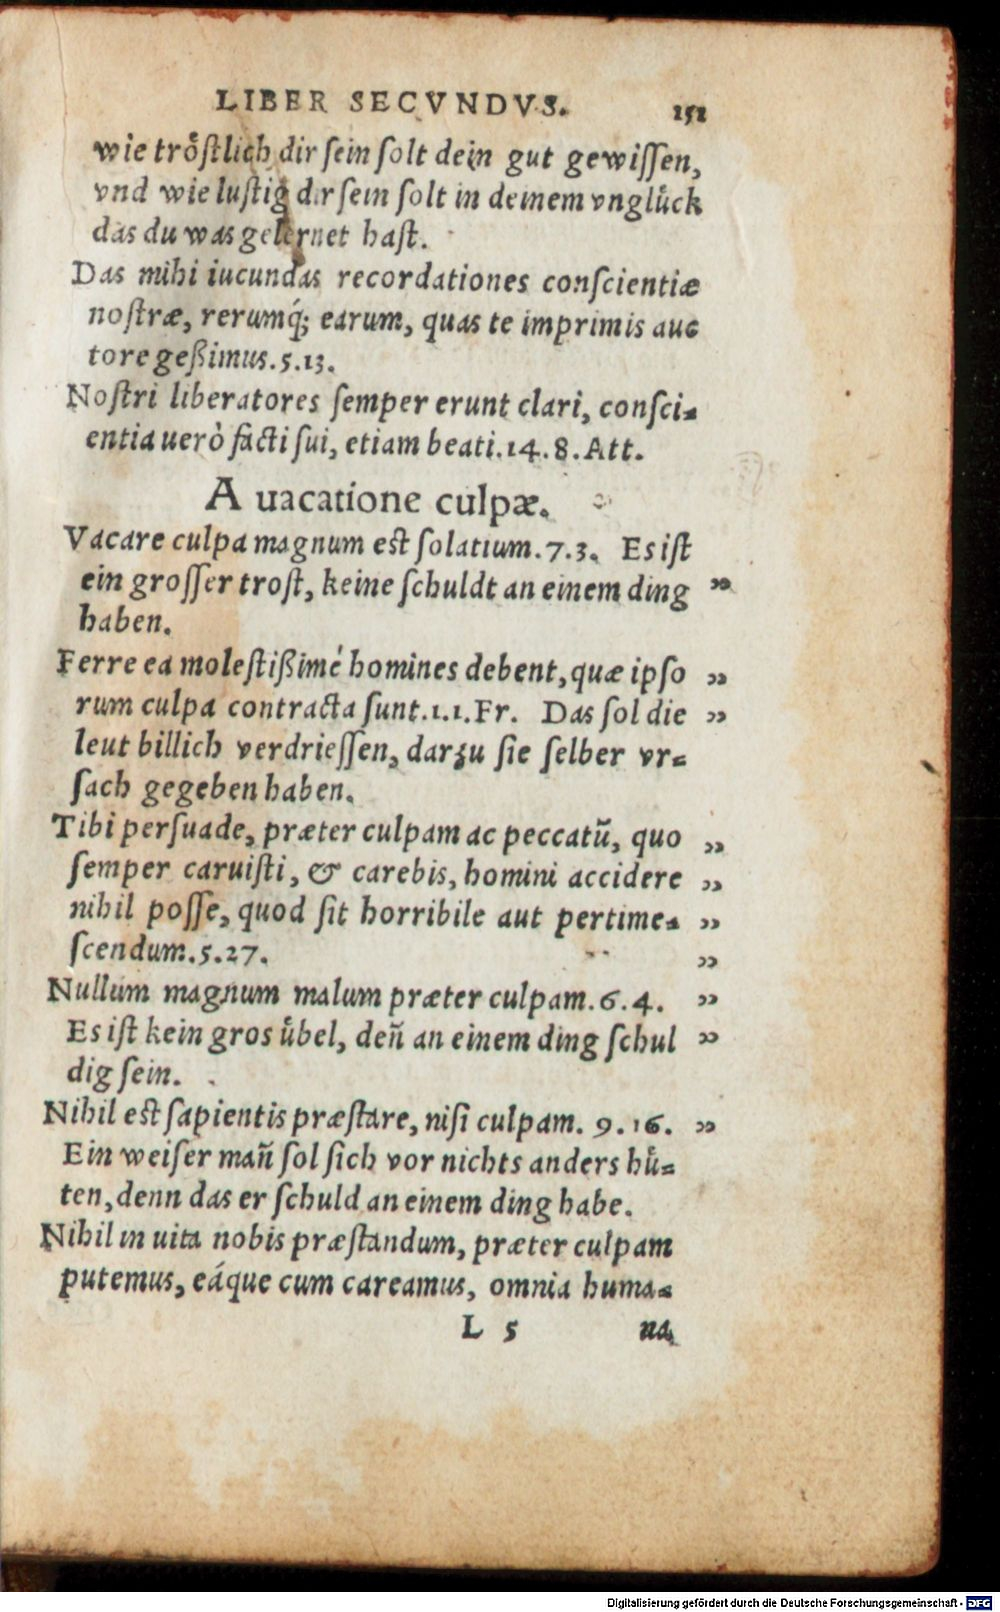 LIBER SECVNDVS. 151
wie trỏſtlich dir ſein ſolt dein gut gewiſſen,
vnd wie luſtig dir ſein ſolt in deinem vnglůck
das du was gelernet haſt.
Das mihi iucundas recordationes conſcientiæ
noſtræ, rerumq́; earum, quas te imprimis auc
tore geßimus.5.13.
Noſtri liberatores ſemper erunt clari, conſci⸗
entia uerò facti ſui, etiam beati.14.8.Att.
A uacatione culpæ.
Vacare culpa magnum eſt ſolatium.7.3. Es iſt
ein groſſer troſt, keine ſchuldt an einem ding „
haben.
Ferre ea moleſtißimé homines debent, quæ ipſo „
rum culpa contracta ſunt.1.1.Fr. Das ſol die „
leut billich verdrieſſen, darzu ſie ſelber vr⸗
ſach gegeben haben.
Tibi perſuade, præter culpam ac peccatũ, quo „
ſemper caruiſti, & carebis, homini accidere „
nihil poſſe, quod ſit horribile aut pertime⸗ „
ſcendum.5.27. „
Nullum magnum malum præter culpam.6.4. „
Es iſt kein gros ůbel, deñ an einem ding ſchul „
dig ſein.
Nihil eſt ſapientis præſtare, niſi culpam. 9.16. „
Ein weiſer mañ ſol ſich vor nichts anders hů⸗
ten, denn das er ſchuld an einem ding habe.
Nihil in uita nobis præſtandum, præter culpam
putemus, eáque cum careamus, omnia huma⸗
L 5 na
Digitalisierung gefördert durch die Deutsche Forschungsgemeinschaft - DFG